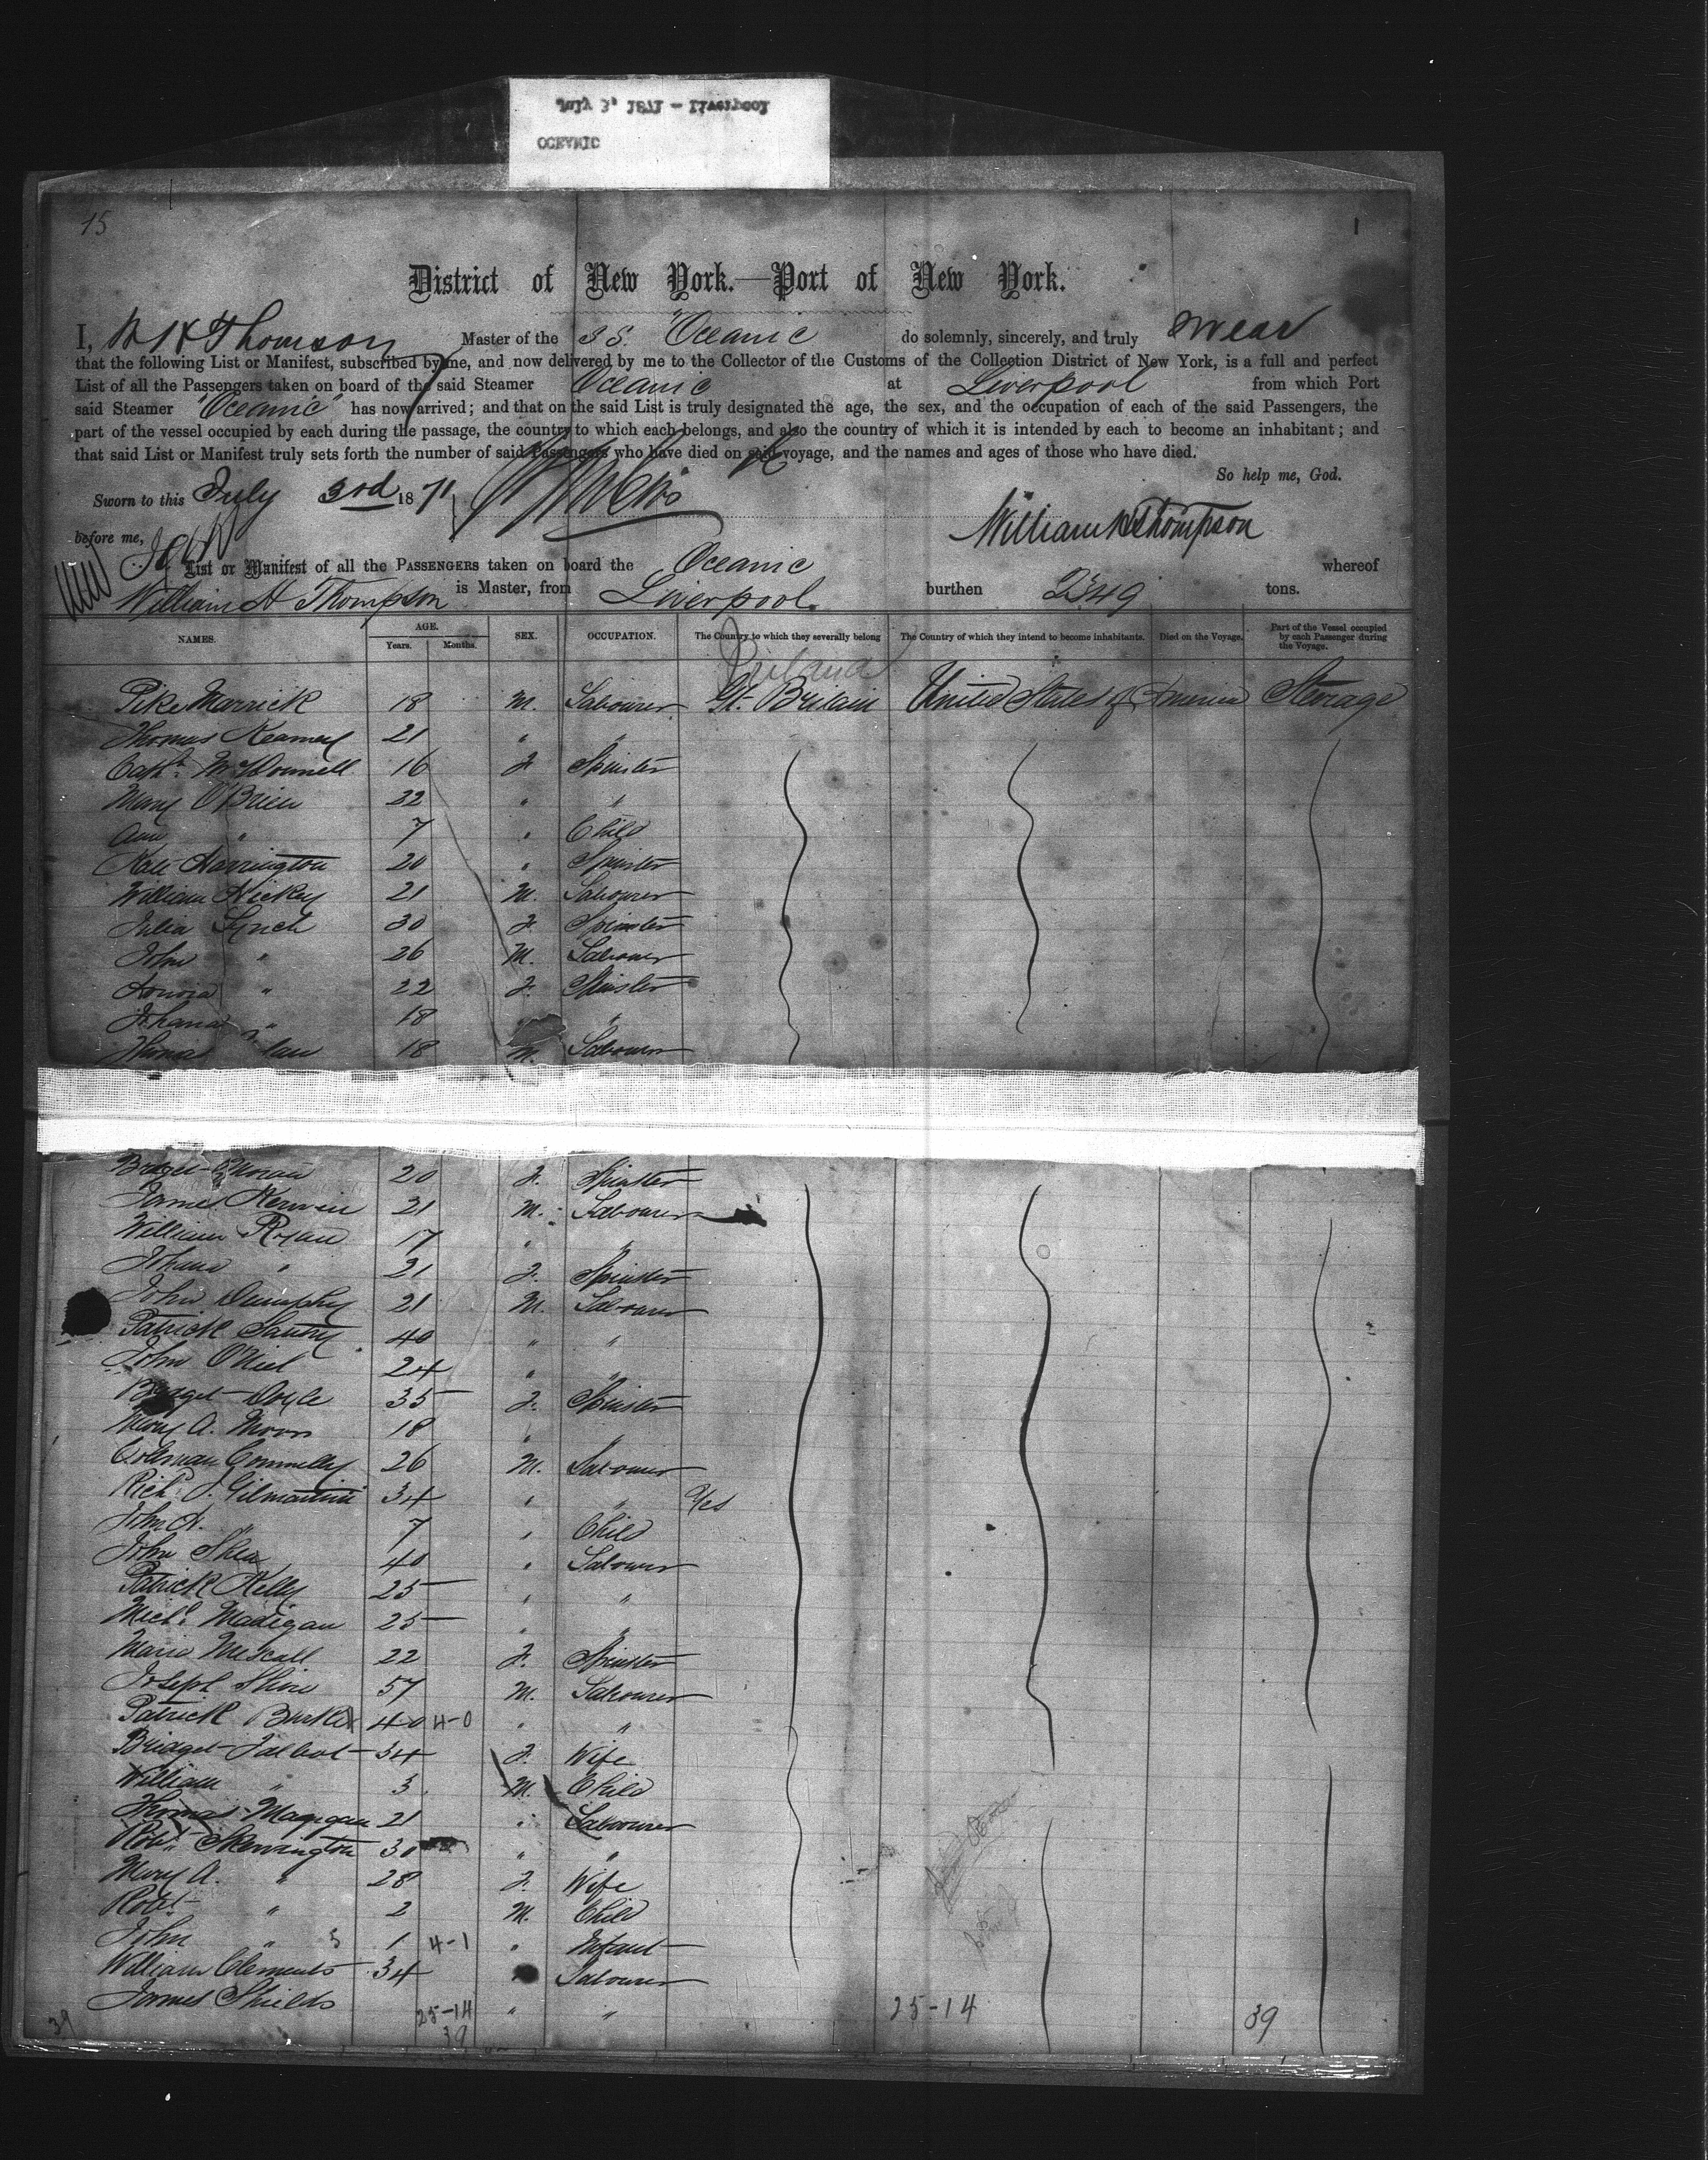 July 3, 1871 - Liverpool
OCEANIC
15
1
District of New York.—Port of New York.
I, W H Thomson Master of the S.S. "Oceanic do solemnly, sincerely, and truly swear
that the following List or Manifest, subscribed by me, and now delivered by me to the Collector of the Customs of the Collection District of New York, is a full and perfect
List of all the Passengers taken on board of the said Steamer Oceanic at Liverpool from which Port
said Steamer "Oceanic" has now arrived; and that on the said List is truly designated the age, the sex, and the occupation of each of the said Passengers, the
part of the vessel occupied by each during the passage, the country to which each belongs, and also the country of which it is intended by each to become an inhabitant; and
that said List or Manifest truly sets forth the number of said Passengers who have died on said voyage, and the names and ages of those who have died.
So help me, God.
Sworn to this July 3rd 1871
before me,
William H Thompson
List or Manifest of all the PASSENGERS taken on board the Oceanic whereof
William H Thompson is Master, from Liverpool. burthen 2349 tons.
NAMES. AGE. Years. Months. SEX. OCCUPATION. The Country to which they severally belong The Country of which they intend to become inhabitants. Died on the Voyage. Part of the Vessel occupied by each Passenger during the Voyage.
Ireland
Pike Marrick 18 M. Labourer Gt. Britain United States of America Steerage
Thomas Kearney 21 " "
Cath. McDonnell 16 F. Spinster
Mary O'Brien 22 " "
Ann " 7 " Child
Kate Harrington 20 " Spinster
William Hickey 21 M. Labourer
Julia Lynch 30 F. Spinster
John " 26 M. Labourer
Honora " 22 F. Spinster
Johana " 18 "
Thomas 18 M. Labourer
Bridget Moran 20 F. Spinster
James Kerwin 21 M. Labourer
William Ryan 17 " "
Johana " 21 F. Spinster
John Dumphy 21 M. Labourer
Patrick Santry 40 " "
John O'Niel 24 " "
Bridget Doyle 35 F. Spinster
Mary A. Moors 18 " "
Coleman Connelly 26 M. Labourer
Richd. J. Gilmartin 34 " " Yes
John H. " 7 " Child
John Shea 40 " Labourer
Patrick Kelly 25 " "
Michl. Madigan 25 " "
Maria Miscall 22 F. Spinster
Joseph Shine 57 M. Labourer
Patrick Burke 40 4-0 " "
Bridget Talbot 34 F. Wife
William " 3 M. Child
Thomas Maggan 21 " Labourer
Robt. Skervington 30 " "
Mary A. " 28 F. Wife
Robt. " 2 M. Child
John " 5 1 4-1 " Infant
William Clements 34 " Labourer
James Shields " "
39 25-14 39 25-14 39